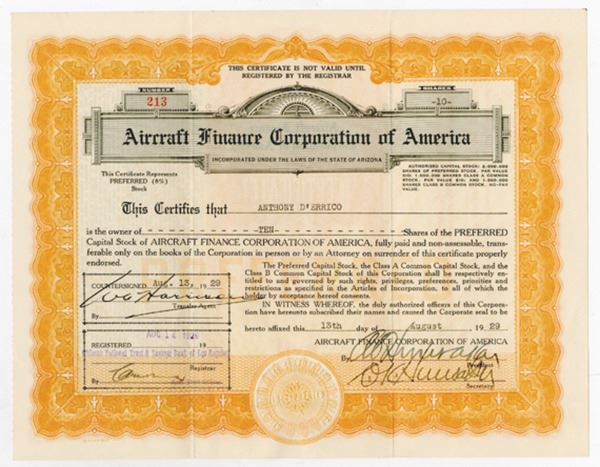 THIS CERTIFICATE IS NOT VALID UNTIL
REGISTERED BY THE REGISTRAR
NUMBER
213
SHARES
-10-
Aircraft Finance Corporation of America
INCORPORATED UNDER THE LAWS OF THE STATE OF ARIZONA
This Certificate Represents
PREFERRED (8%)
Stock
AUTHORIZED CAPITAL STOCK: 2,000,000
SHARES OF PREFERRED STOCK, PAR VALUE
$10; 1,000,000 SHARES CLASS A COMMON
STOCK, PAR VALUE $10; AND 1,000,000
SHARES CLASS B COMMON STOCK, NO-PAR
VALUE.
This Certifies that ANTHONY D'ERRICO
is the owner of - - - - - - - - - - - - - - - TEN - - - - - - - - - - - - - - - Shares of the PREFERRED
Capital Stock of AIRCRAFT FINANCE CORPORATION OF AMERICA, fully paid and non-assessable, trans-
ferable only on the books of the Corporation in person or by an Attorney on surrender of this certificate properly
endorsed.
The Preferred Capital Stock, the Class A Common Capital Stock, and the
Class B Common Capital Stock of this Corporation shall be respectively enti-
tled to and governed by such rights, privileges, preferences, priorities and
restrictions as specified in the Articles of Incorporation, to all of which the
holder by acceptance hereof consents.
IN WITNESS WHEREOF, the duly authorized officers of this Corpora-
tion have hereunto subscribed their names and caused the Corporate seal to be
hereto affixed this 13th day of August 1929
AIRCRAFT FINANCE CORPORATION OF AMERICA
By
President
Secretary
COUNTERSIGNED Aug. 13, 1929
Transfer Agent
By
AUG 14 1929
REGISTERED 19
National Trust & Savings Bank of Los Angeles
Registrar
By